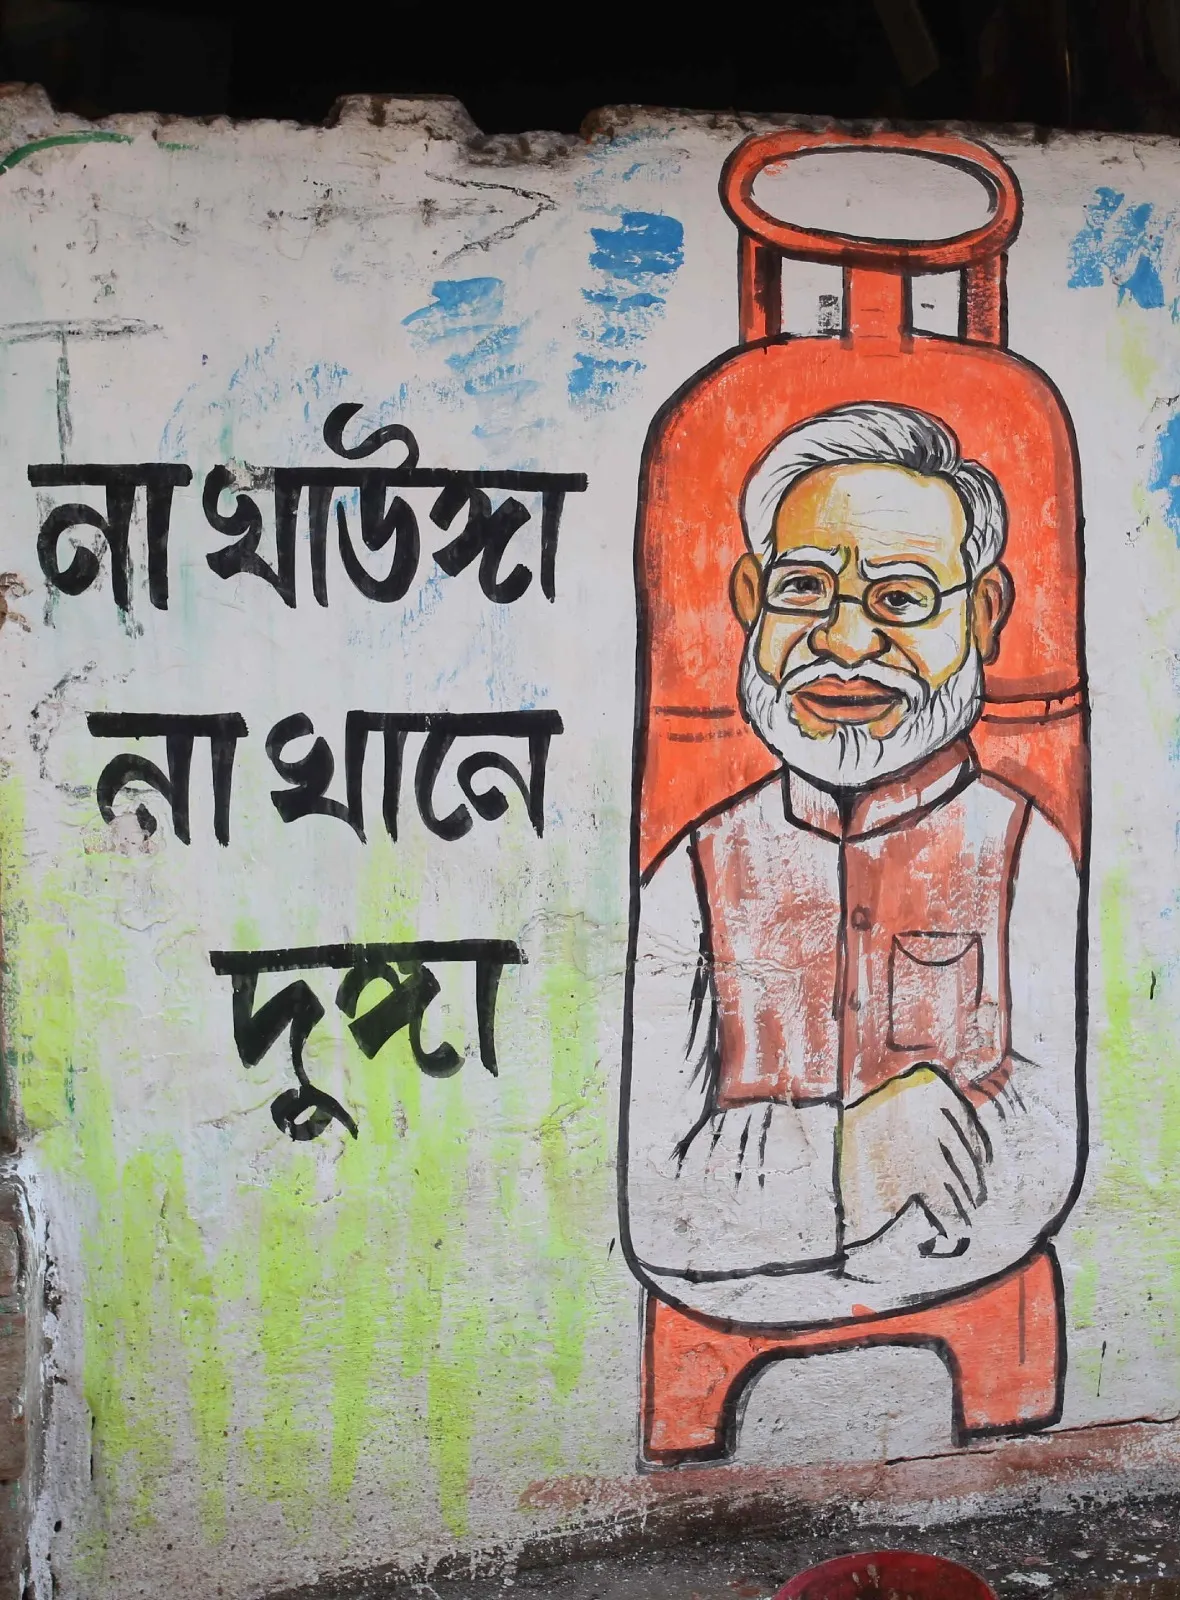 না খাউঙ্গা
না খানে
দুঙ্গা